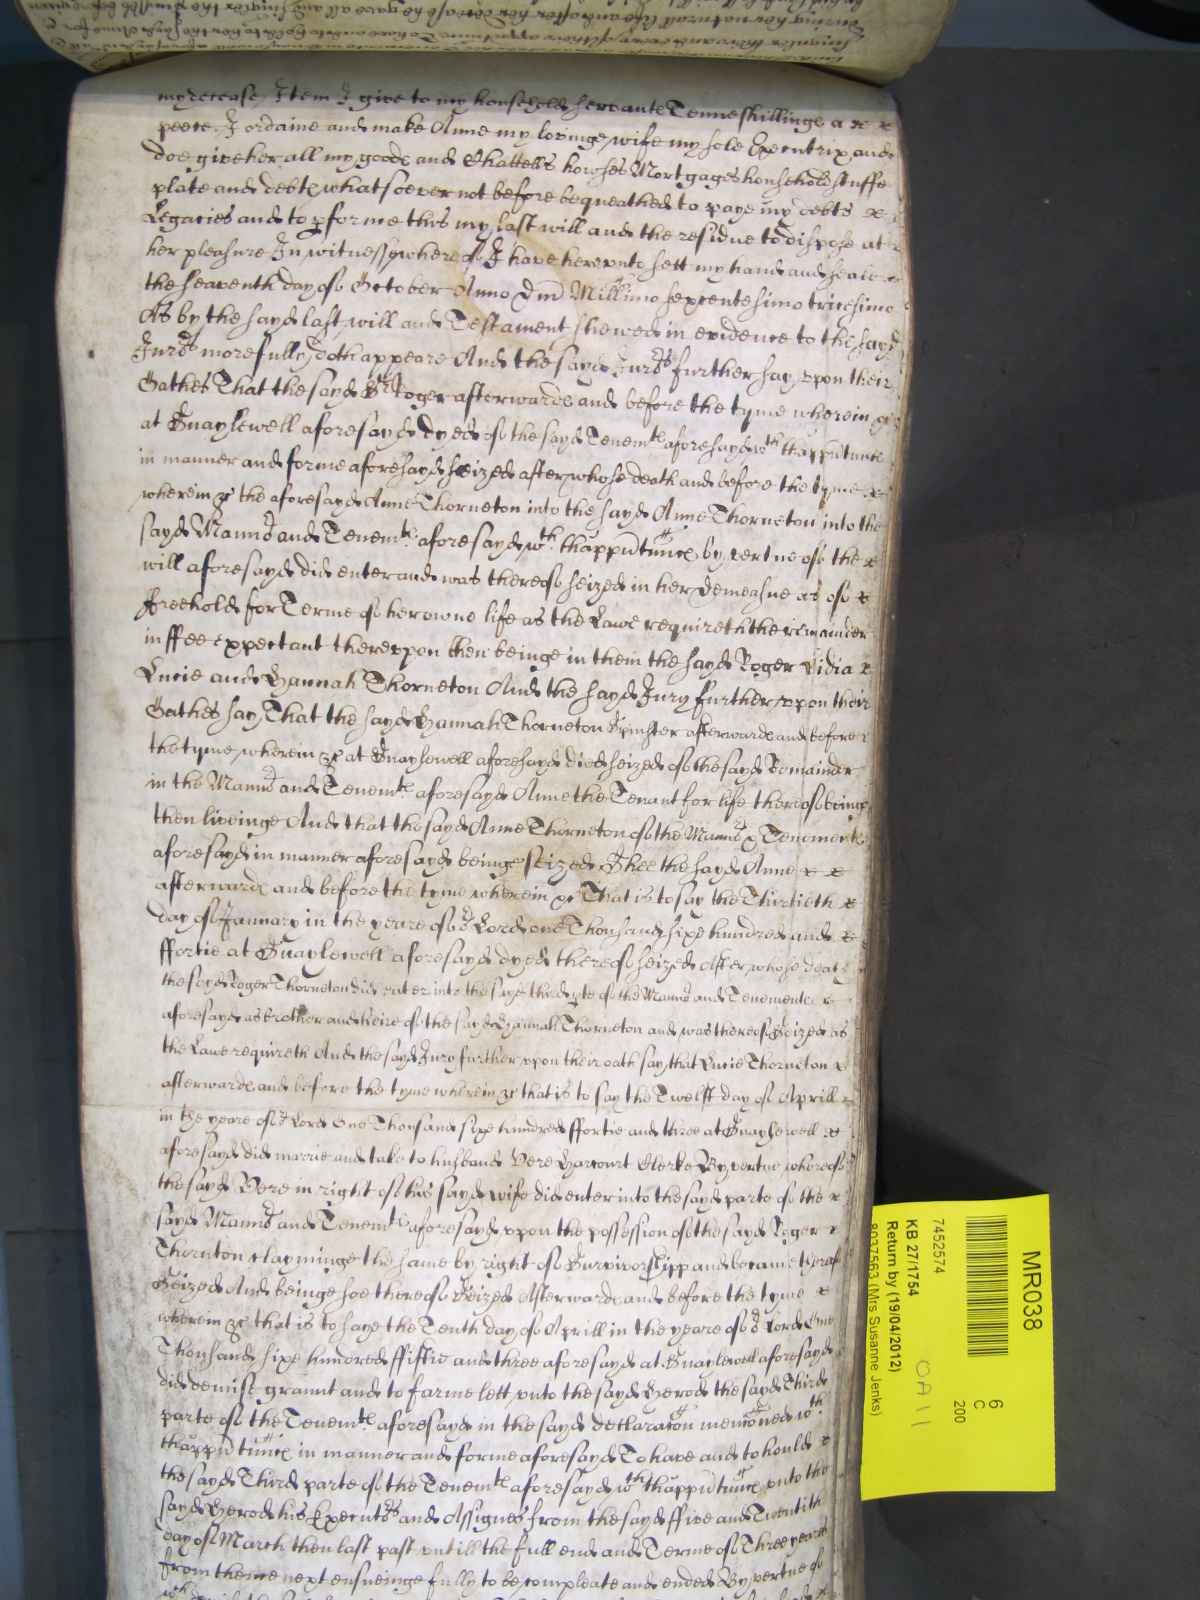 my decease Item I give to my household servante Tenne shillinge a
peece. I ordaine and make Anne my lovinge wife my sole Executrix and
doe give her all my goode and Chattells howses Mortgages household stuffe
plate and debte whatsoever not before bequeathed to paye my debts
Legacies and to pforme this my last will and the residue to dispose at
her pleasure In witnesse whereof I have hereunto sett my hand and seale
the seaventh day of October Anno Dni Millimo sexcentesimo tricesimo
As by the sayd last will and Testament shewed in evidence to the sayd
Jurs more fully doth appeare And the sayd Jurs further say upon their
Oathes That the sayd Sr Roger afterwarde and before the tyme wherein &c
at Snaylewell aforesayd dyed of the sayd Tenemte aforesayd wth thappurtunce
in manner and forme aforesayd seized after whose death and before the tyme
wherein &c the aforesayd Anne Thorneton into the sayd Anne Thorneton into the
sayd Mannor and Tenemte aforesayd wth thappurtunce by vertue of the
will aforesayd did enter and was thereof seized in her demeasne as of
ffreehold for Terme of her owne life as the Lawe requireth the remainder
in ffee expectant thereupon then beinge in them the sayd Roger Lidia
Lucie and Hannah Thorneton And the sayd Jury further upon their
Oathes say That the sayd Hannah Thorneton Spinster afterwarde and before
the tyme wherein &c at Snaylewell aforesayd died seized of the sayd Remainder
in the Mannor and Tenemte aforesayd Anne the Tenant for life thereof being
then liveinge And that the sayd Anne Thorneton of the Mannor & Tenemente
aforesayd in manner aforesayd beinge seized Shee the sayd Anne
afterwarde and before the tyme wherein &c That is to say the Thirtieth
day of January in the yeare of or Lord one Thousand sixe hundred and
ffortie at Snaylewell aforesayd dyed thereof seized After whose death
the sayd Roger Thorneton did enter into the sayd third pte of the Mannor and Tenemente
aforesayd as brother and heire of the sayd Hannah Thorneton and was thereof Seized as
the Lawe requireth And the sayd Jury further upon their oath say that Lucie Thorneton
afterwarde and before the tyme wherein &c that is to say the Twelft day of Aprill
in the yeare of or Lord One Thousand sixe hundred ffortie and three at Snaylewell
aforesayd did marrie and take to husband Vere Harcourt Clerke By vertue whereof
the sayd Vere in right of his sayd wife did enter into the sayd parte of the
sayd Mannor and Tenemte aforesayd upon the possession of the sayd Roger
Thornton clayminge the same by right of Survivorshipp and became thereof
Seized And beinge soe thereof Seized Afterwarde and before the tyme
wherein &c that is to saye the Tenth day of Aprill in the yeare of or Lord One
Thousand sixe hundred ffiftie and three aforesayd at Snaylewell aforesayd
did demise graunt and to farme lett unto the sayd Herod the sayd Third
parte of the Tenemte aforesayd in the sayd declaracon menconed wth
thappurtunce in manner and forme aforesayd To have and to hould
the sayd Third parte of the Tenemte aforesayd wth thappurtunce unto the
sayd Herod his Executrs and Assignes from the sayd ffive and Twentith
day of March then last past untill the full end and Terme of Three yeares
from thence next ensueinge fully to be compleate and ended By vertue of
MR038
6
C
200
7452574
KB 27/1754
Return by (19/04/2012)
8037563 (Mrs Susanne Jenks)
OA11